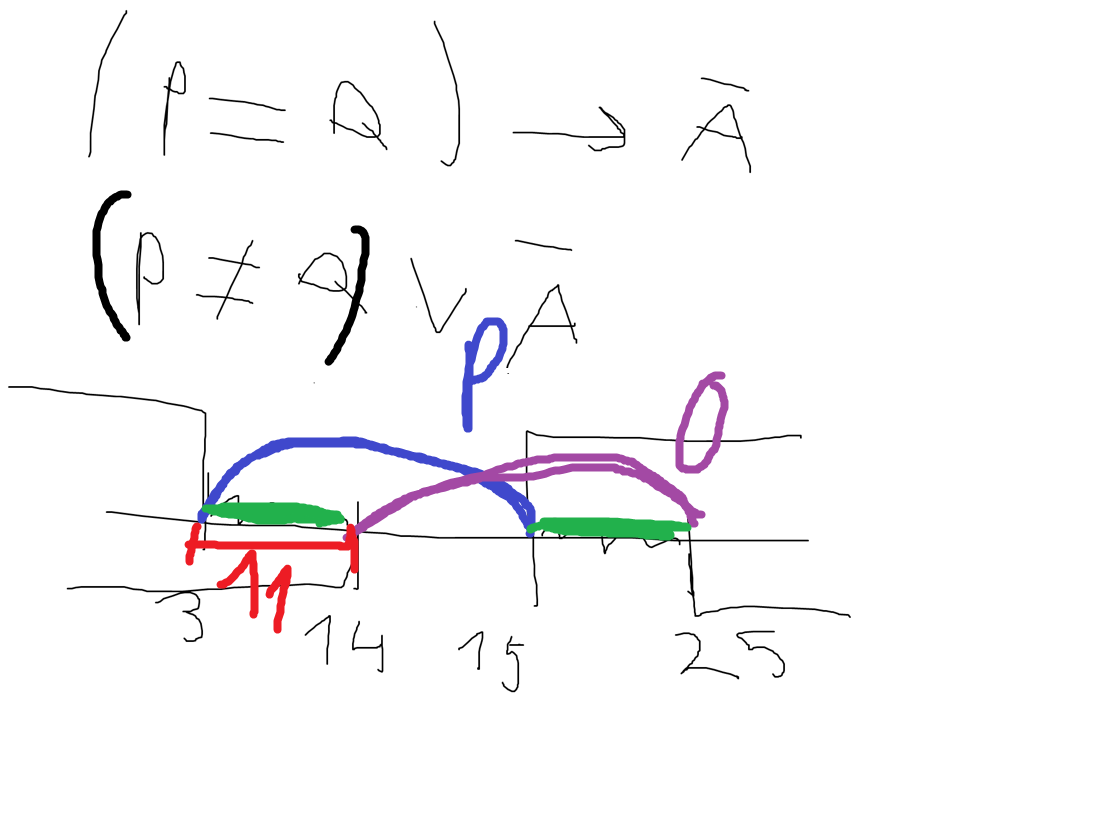 (P = Q) → Ā
(P ≠ Q) V Ā
P
Q
11
3 14 15 25